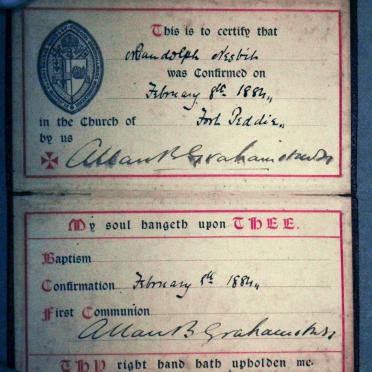 This is to certify that
Randolph Nesbitt
was Confirmed on
February 8th 1884
in the Church of Fort Peddie
by us
Allan B Grahamstown
My soul hangeth upon THEE.
Baptism
Confirmation February 8th 1884
First Communion
Allan B Grahamstown
Thy right hand hath upholden me.